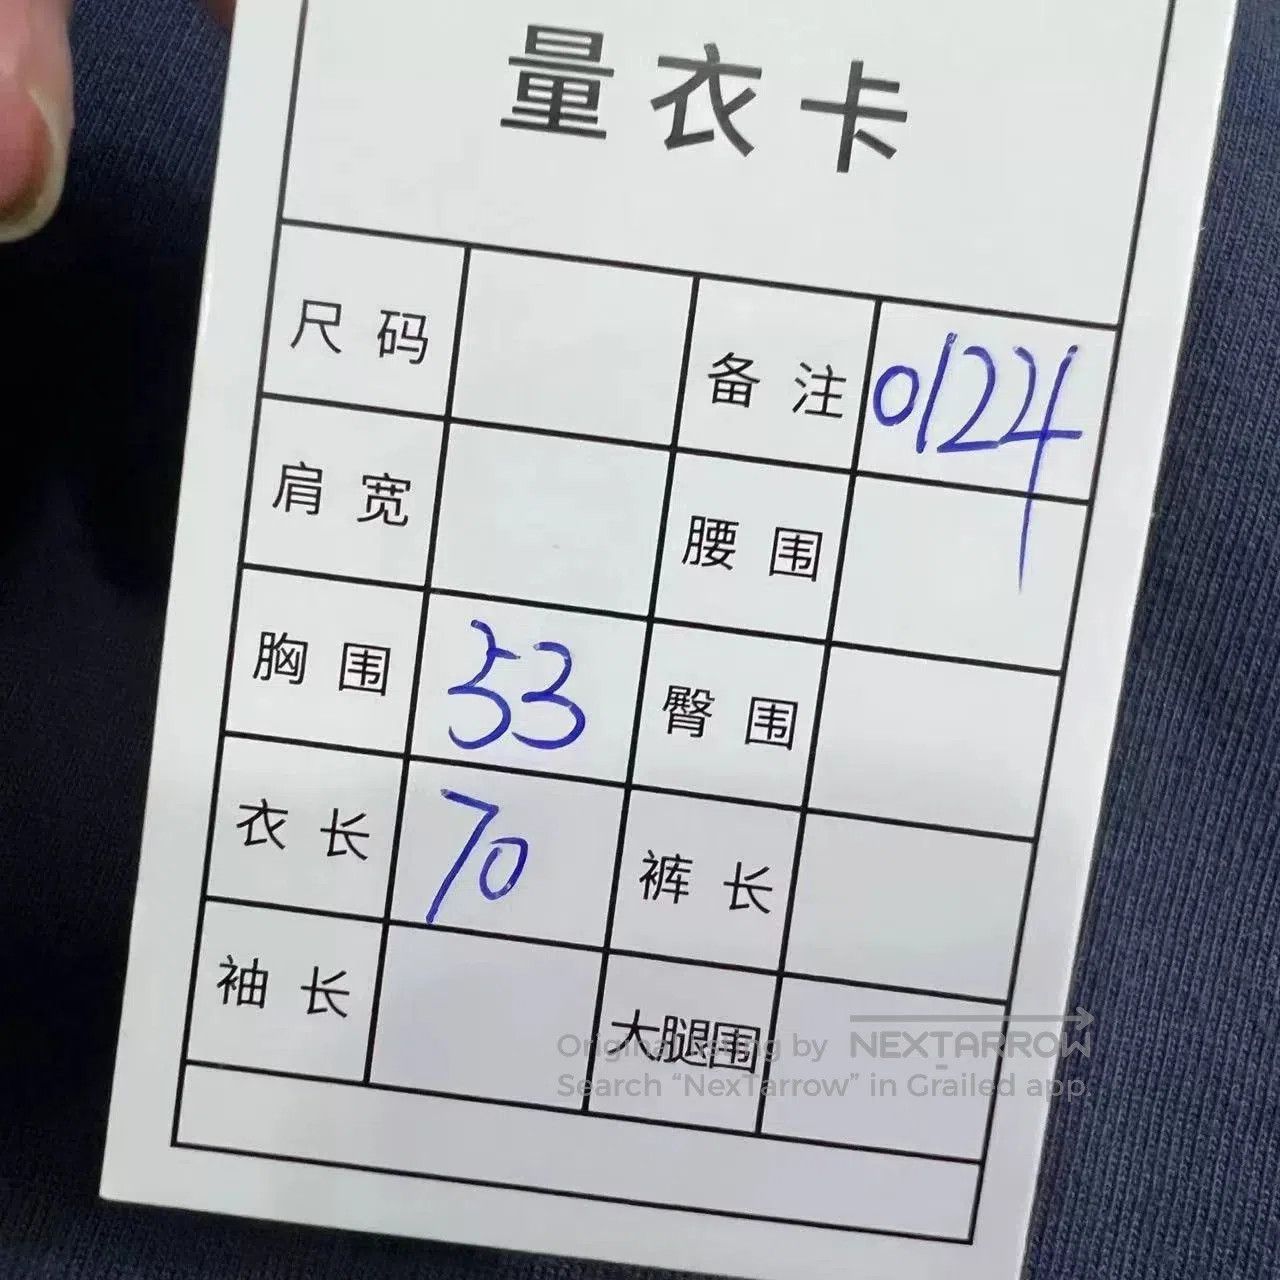 量衣卡
尺码 备注 0124
肩宽 腰围
胸围 53 臀围
衣长 70 裤长
袖长 大腿围
Original listing by NEXTARROW
Search “NexTarrow” in Grailed app.